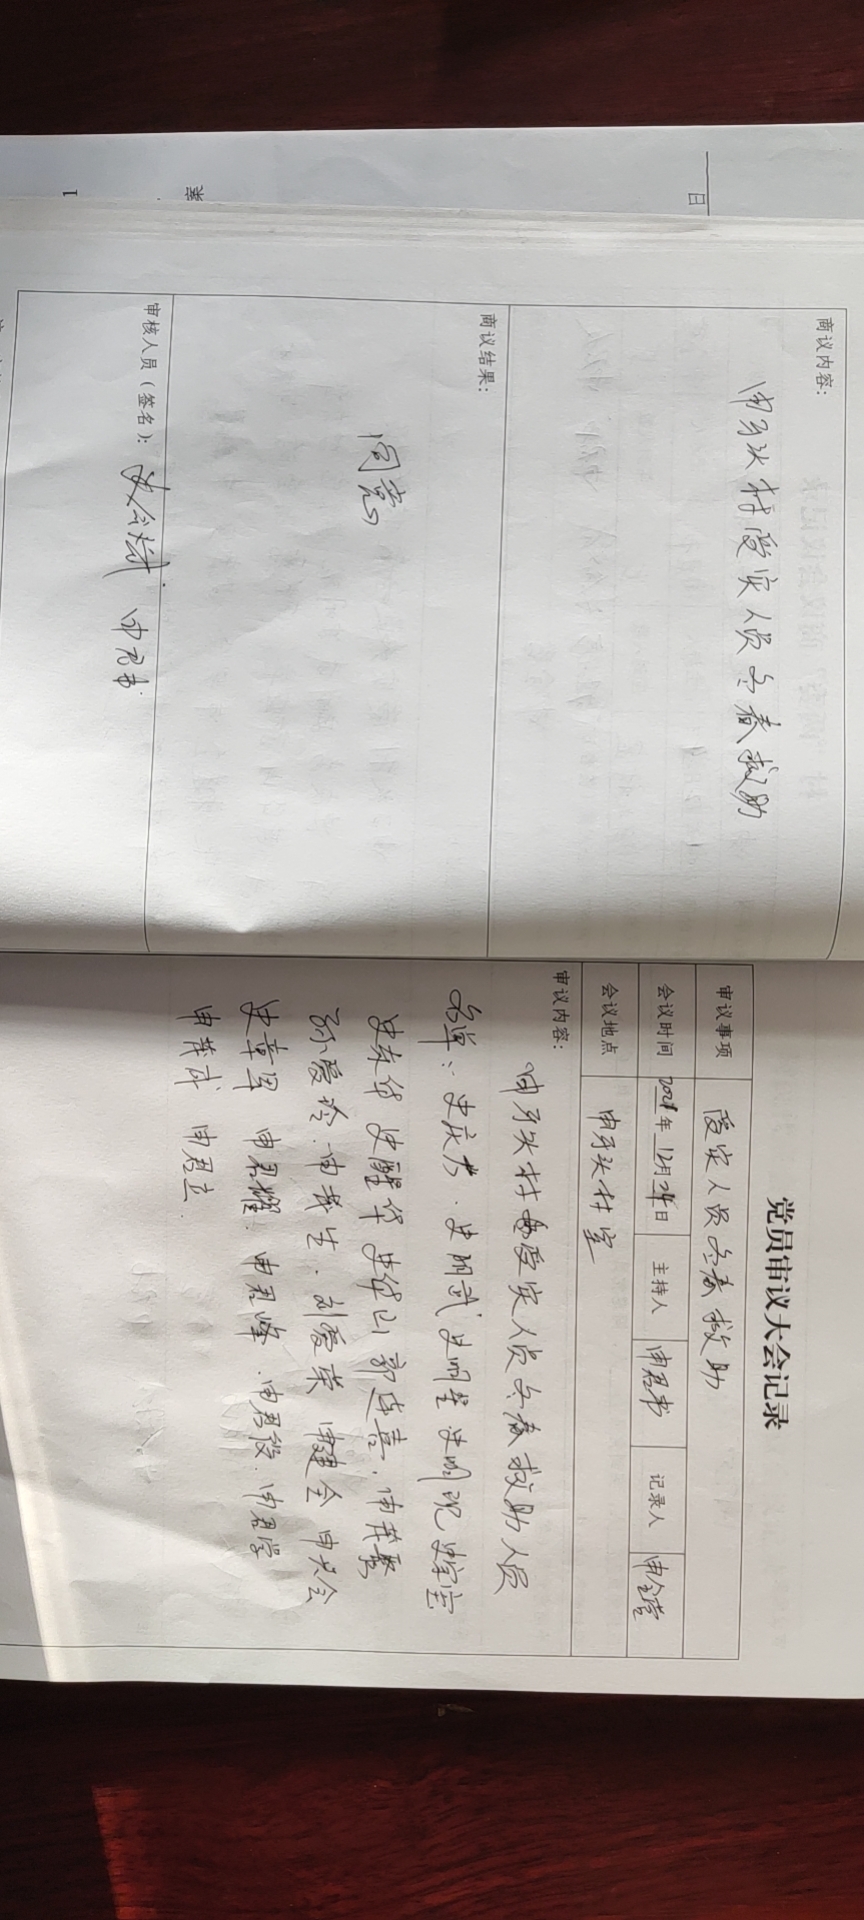 案
1
日
商议内容:
申家头村受灾人员冬春救助
商议结果:
同意
审核人员(签名): 申君书
党员审议大会记录
审议事项 受灾人员冬春救助
会议时间 2021年12月24日 主持人 申君书 记录人
会议地点 村室
审议内容:
村受灾人员冬春救助人员
名单: 史庆 史明武 史明 史明现 史宝
史东华 史醒华 史华山 郭连喜
孙爱玲 申茂生 刘爱荣 申建会
史章军 申君耀 申君峰 申君 申君学
申茂成 申君立